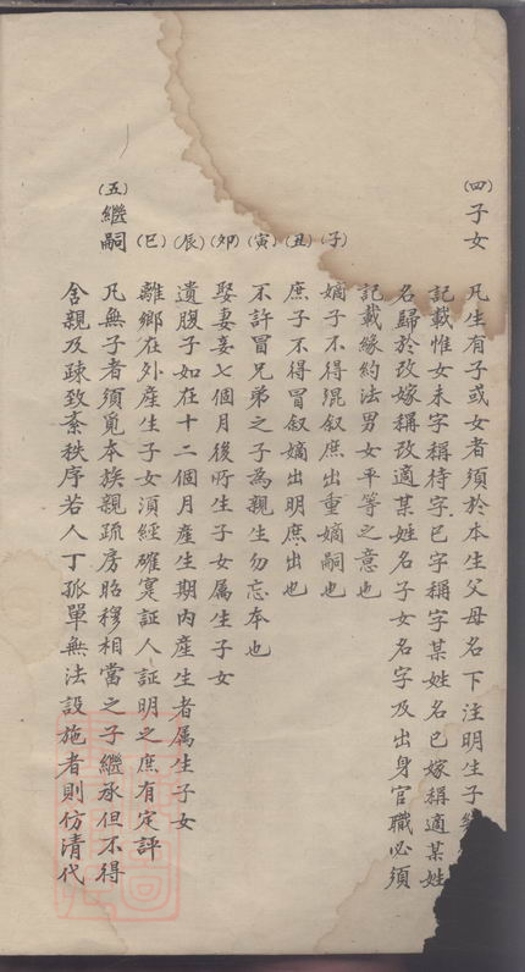 (四)子女
凡生有子或女者須於本生父母名下注明生子
記載惟女未字稱待字已字稱字某姓名已嫁稱適某姓
名歸於改嫁稱改適某姓名子女名字及出身官職必須
記載緣約法男女平等之意也
(子)嫡子不得混叙庶出重嫡嗣也
(丑)庶子不得冒叙嫡出明庶出也
(寅)不許冒兄弟之子為親生勿忘本也
(卯)娶妻妾七個月後所生子女属生子女
(辰)遺腹子如在十二個月產生期内產生者属生子女
(巳)離鄉在外產生子女須經確寔証人証明之庶有定評
(五)繼嗣
凡無子者須覓本族親疏房昭穆相當之子繼承但不得
舍親及疎致紊秩序若人丁孤單無法設施者則仿清代